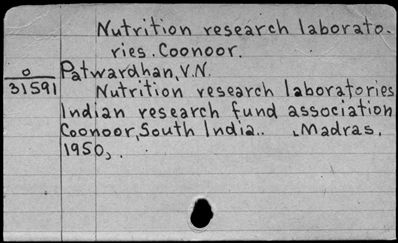 Nutrition research laborato-
ries. Coonoor.
o
31591
Patwardhan, V.N.
Nutrition research laboratories
Indian research fund association
Coonoor, South India.. Madras,
1950,.